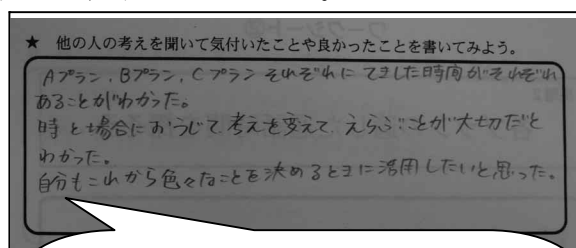 ★ 他の人の考えを聞いて気付いたことや良かったことを書いてみよう。
Aプラン、Bプラン、Cプランそれぞれに てきした時間がそれぞれ
あることがわかった。
時と場合におうじて考えを変えて、えらぶことが大切だと
わかった。
自分もこれから色々なことを決めるときに活用したいと思った。